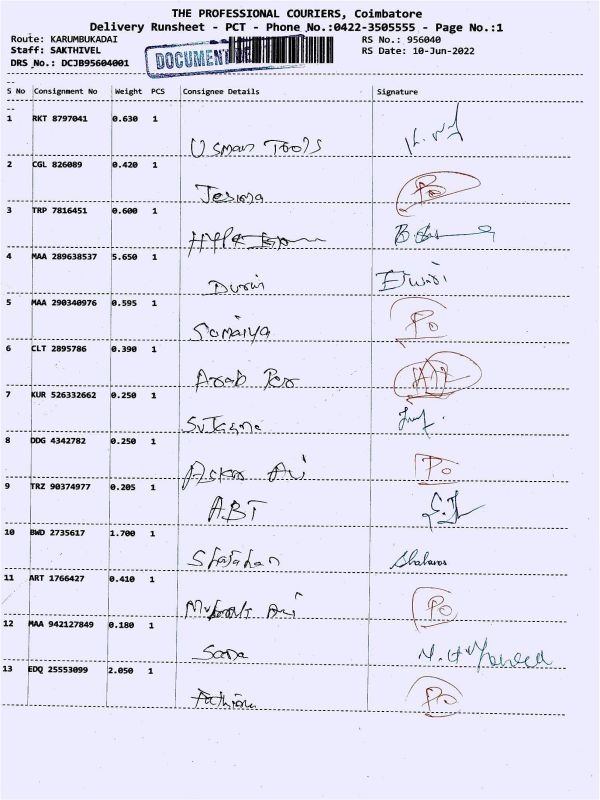 THE PROFESSIONAL COURIERS, Coimbatore
Delivery Runsheet - PCT - Phone No.:0422-3505555 - Page No.:1
Route: KARUMBUKADAI RS No.: 956040
Staff: SAKTHIVEL RS Date: 10-Jun-2022
DRS No.: DCJB95604001
DOCUMENT
S No Consignment No Weight PCS Consignee Details Signature
1 RKT 8797041 0.630 1
Usman Tools
2 CGL 826089 0.420 1
Jesima Po
3 TRP 7816451 0.600 1
4 MAA 289638537 5.650 1
5 MAA 290340976 0.595 1
Sumaiya Po
6 CLT 2895786 0.390 1
Arab
7 KUR 526332662 0.250 1
8 DDG 4342782 0.250 1
Po
9 TRZ 90374977 0.205 1
ABT
10 BWD 2735617 1.700 1
11 ART 1766427 0.410 1
Po
12 MAA 942127849 0.180 1
Sana
13 EDQ 25553099 2.050 1
Po